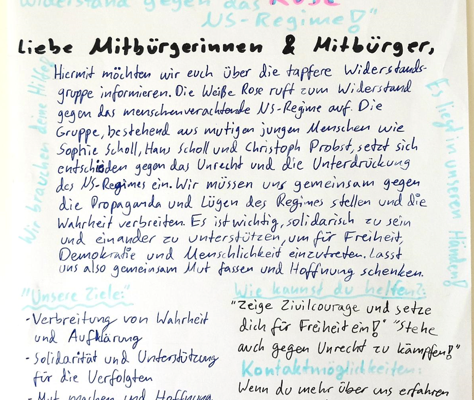 Widerstand gegen das Rose
NS-Regime!"
Liebe Mitbürgerinnen & Mitbürger,
Hiermit möchten wir euch über die tapfere Widerstands-
gruppe informieren. Die Weiße Rose ruft zum Widerstand
gegen das menschenverachtende NS-Regime auf. Die
Gruppe, bestehend aus mutigen jungen Menschen wie
Sophie Scholl, Hans Scholl und Christoph Probst, setzt sich
entschieden gegen das Unrecht und die Unterdrückung
des NS-Regimes ein. Wir müssen uns gemeinsam gegen
die Propaganda und Lügen des Regimes stellen und die
Wahrheit verbreiten. Es ist wichtig, solidarisch zu sein
und einander zu unterstützen, um für Freiheit,
Demokratie und Menschlichkeit einzutreten. Lasst
uns also gemeinsam Mut fassen und Hoffnung schenken.
Wir brauchen dein Hilfe!
Es liegt in unseren Händen!
"Unsere Ziele:"
- Verbreitung von Wahrheit
und Aufklärung
- Solidarität und Unterstützung
für die Verfolgten
- Mut machen und Hoffnung
Wie kannst du helfen?:
"Zeige Zivilcourage und setze
dich für Freiheit ein!" "Stehe
auch gegen Unrecht zu kämpfen!"
Kontaktmöglichkeiten:
Wenn du mehr über uns erfahren